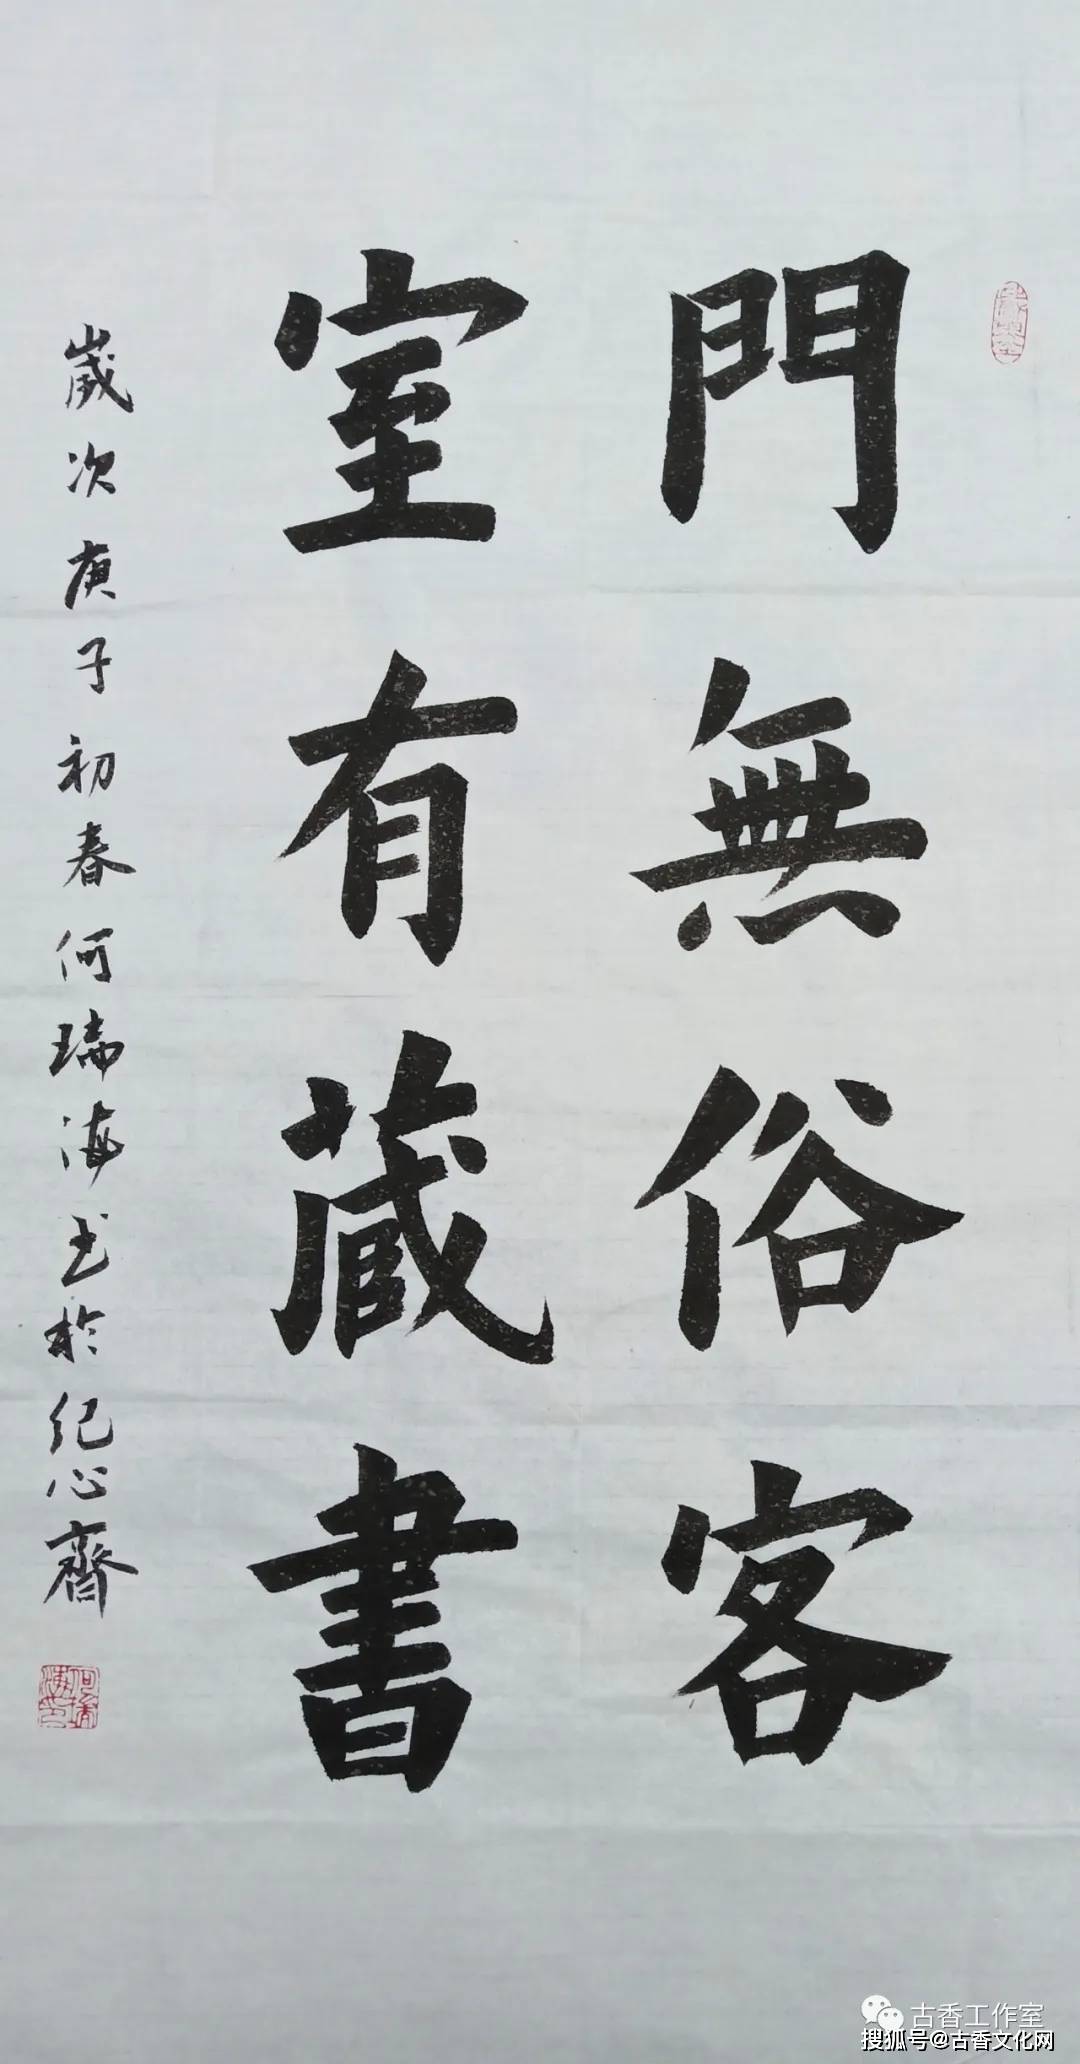 門無俗客
室有藏書
歲次庚子初春何瑞海书於纪心齋
古香工作室
搜狐号@古香文化网